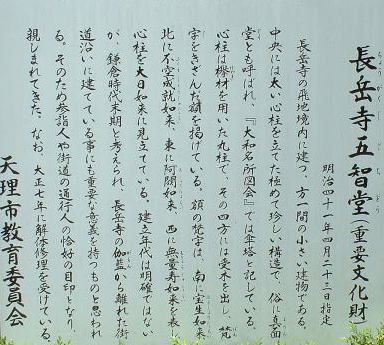 長岳寺五智堂(重要文化財)
明治四十一年四月二十三日指定
長岳寺の飛地境内に建つ、方一間の小さい建物である。
中央には太い心柱を立てた極めて珍しい構造で、俗に真面
堂とも呼ばれ、『大和名所図会』では傘塔と記している。
心柱は欅材を用いた丸柱で、その四方には受木を出し、梵
字をきざんだ額を掲げている。額の梵字は、南に宝生如来、
北に不空成就如来、東に阿閦如来、西に無量寿如来を表し
心柱を大日如来に見立てている。建立年代は明確ではない
が、鎌倉時代末期と考えられ、長岳寺の伽藍から離れた街
道沿いに建てている事にも重要な意義を持つものと思われ
る。そのため参詣人や街道の通行人の恰好の目印となり、
親しまれてきた。なお、大正七年に解体修理を受けている。
天理市教育委員会